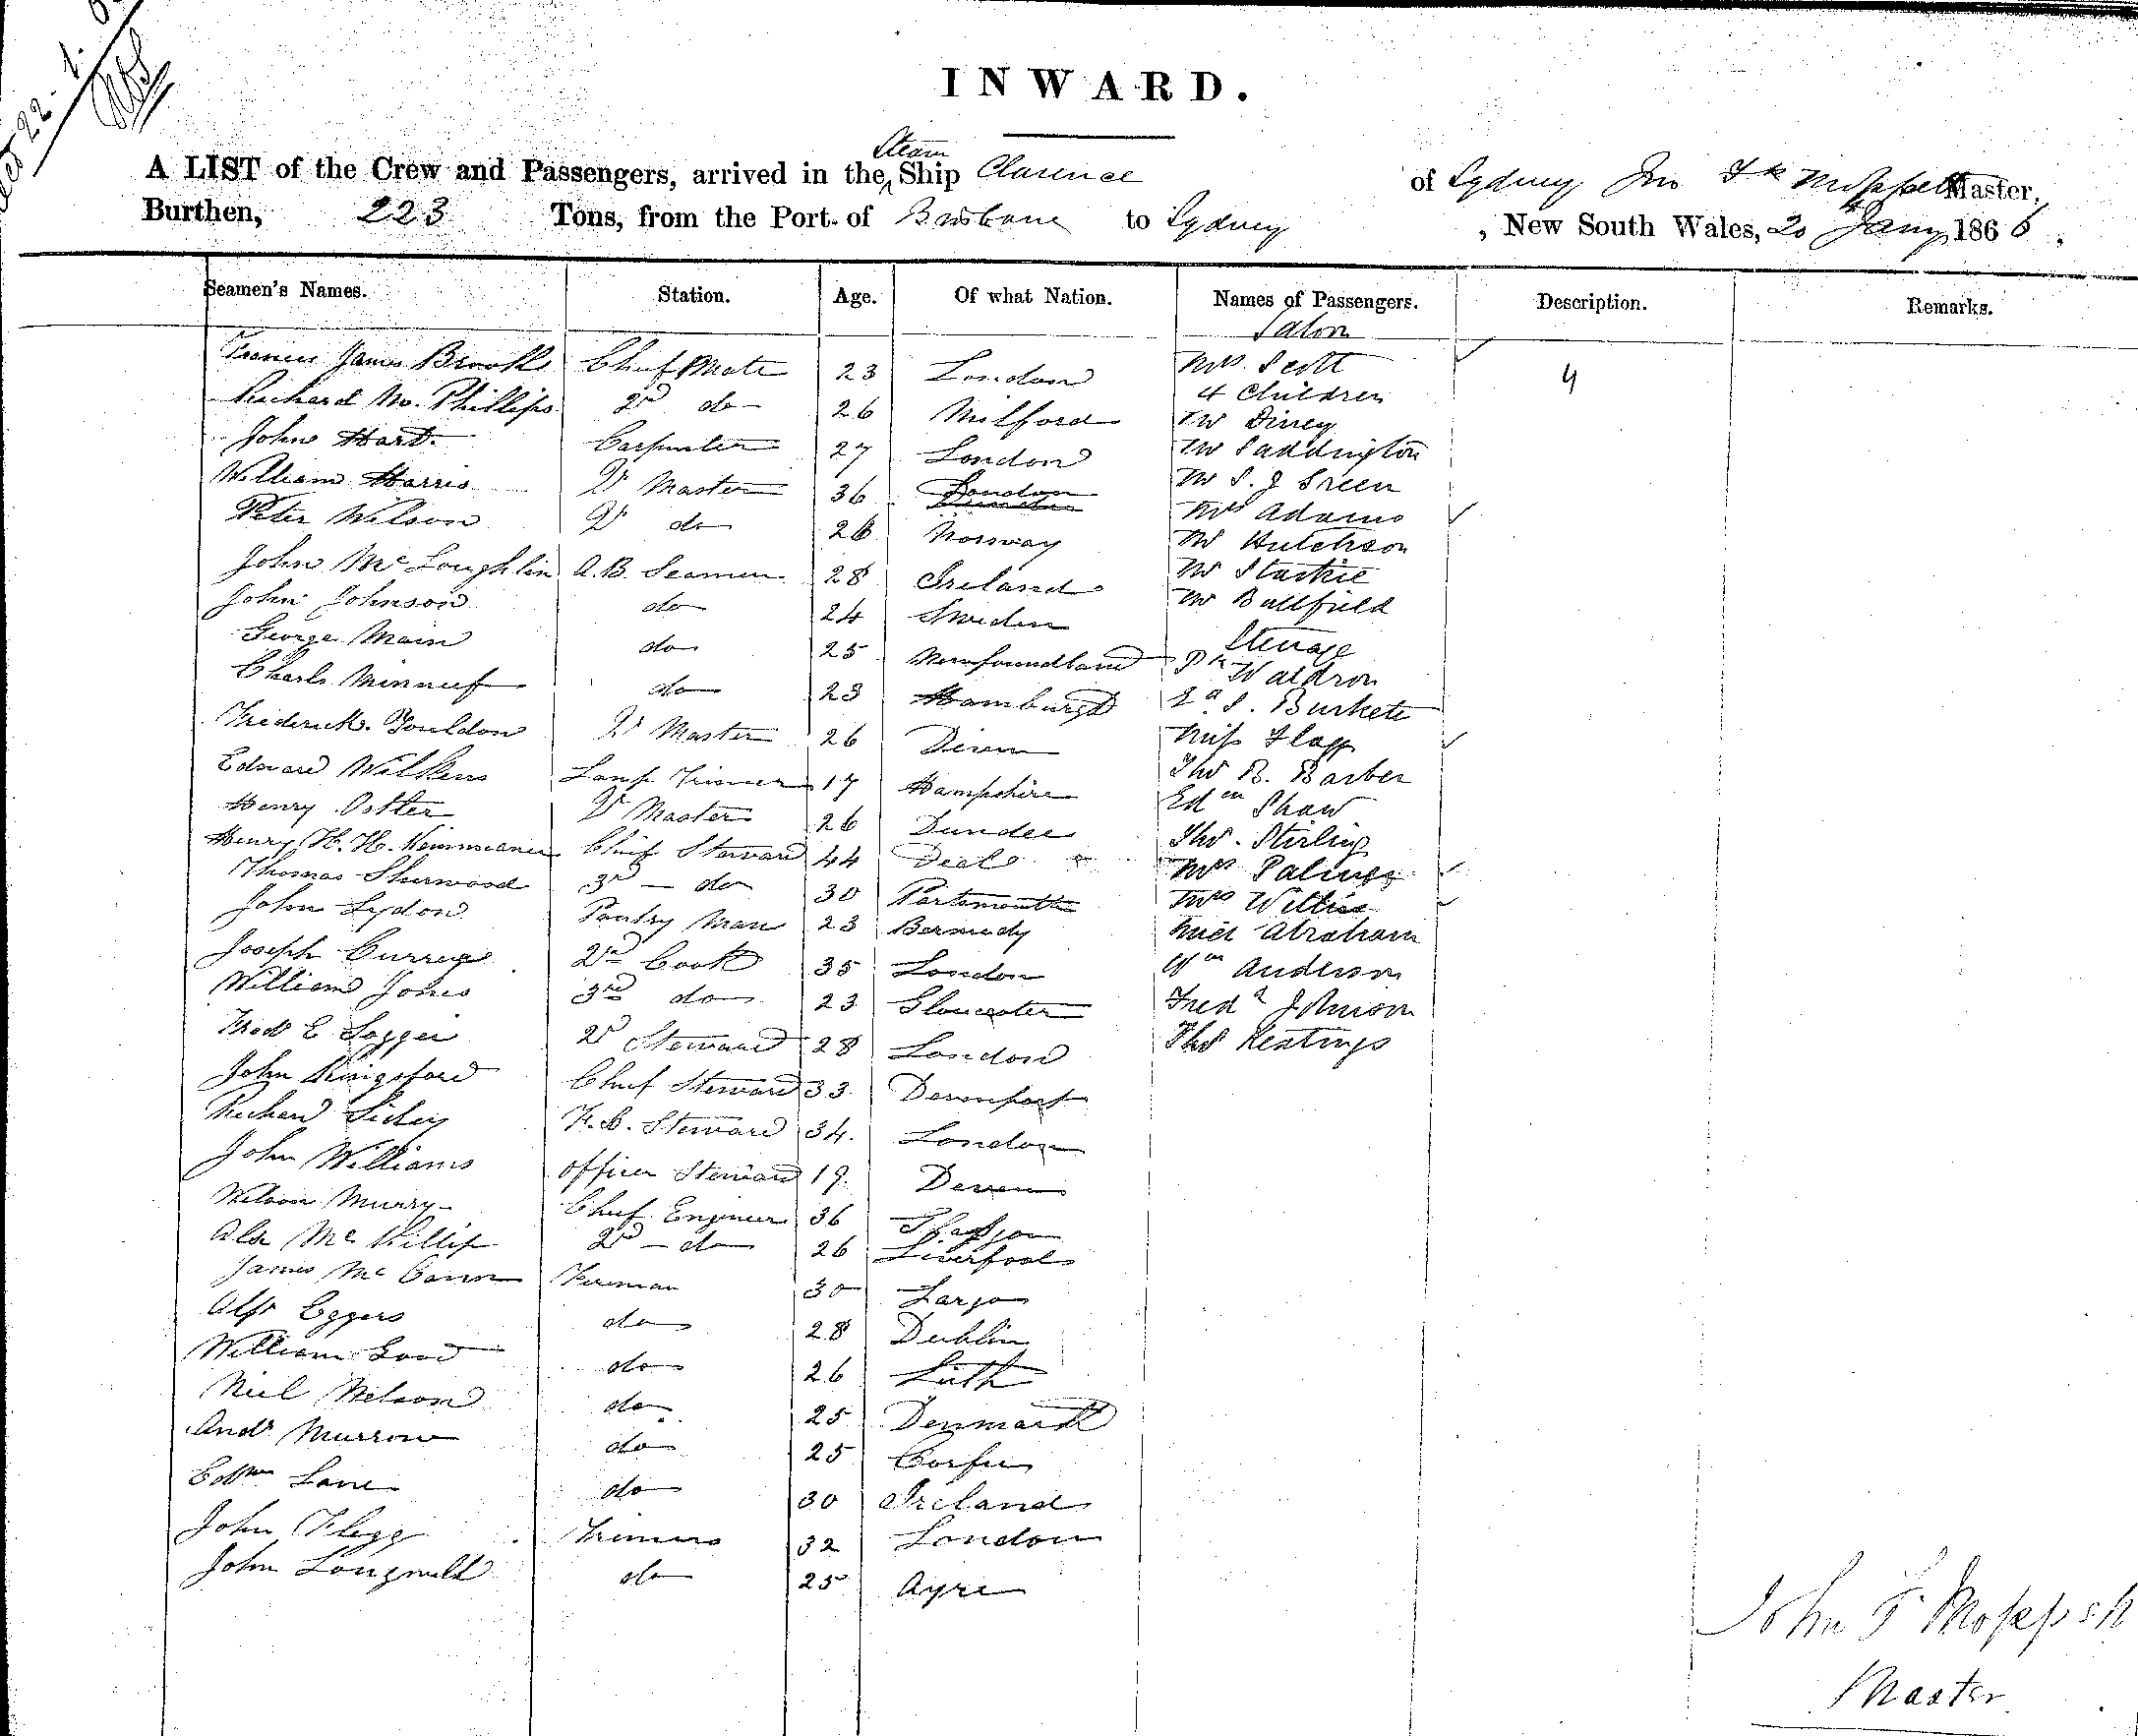 INWARD.
Steam
A LIST of the Crew and Passengers, arrived in the Ship Clarence of Sydney Jno Fk Moppett Master,
Burthen, 223 Tons, from the Port of Brisbane to Sydney, New South Wales, 20 Jany 1866,
Seamen's Names. Station. Age. Of what Nation. Names of Passengers. Description. Remarks.
Salon
Francis James Brooks Chief Mate 23 London Mrs Scott
4 Children 4
Richard M. Phillips 2nd do 26 Milford Mr Diney
John Hart Carpenter 27 London Mr Saddington
William Harris Qr Master 36 London Mr S. J Green
Peter Wilson Qr do 26 Norway Mrs Adams
Mr Hutchson
John McLoughlin A.B. Seaman 28 Ireland Mr Starkie
John Johnson do 24 Sweden Mr Bullfield
Steerage
George Main do 25 Newfoundland Pk Waldron
Charls do 23 Hamburgh S. Burkete
Frederick Gouldon Qr Master 26 Devon Miss Flagg
Edward Wilkins Lamp Trimmer 17 Hampshire Thos R. Barber
Henry Potter Qr Master 26 Dundee Edm Shaw
Henry H. H. Chief Steward 44 Deal Thos Stirling
Thomas Sherwood 3rd do 30 Portsmouth Mrs Palmer
John Lydon Pantry Man 23 Bermudy Mrs Willis
Joseph Currey 2nd Cook 35 London Abraham
William Jones 3rd do 23 Gloucester Wm Anderson
Fredk E 2d Steward 28 London Fredk Johnson
John Kingsford Chief Steward 33 Devonport Thos Keatings
Richard F.C. Steward 34 London
John Williams Officer Steward 19 Devon
Murry Chief Engineer 36 Glasgow
Alex McKillip 2nd do 26 Liverpool
James McCann Fireman 30 Largo
Alfr Eggers do 28 Dublin
William Good do 26 Leith
Niel Nelson do 25 Denmark
Andw Murrow do 25 Corfu
Edwn Lane do 30 Ireland
John Flegg Trimers 32 London
John do 25 Ayre
John F. Moppett
Master